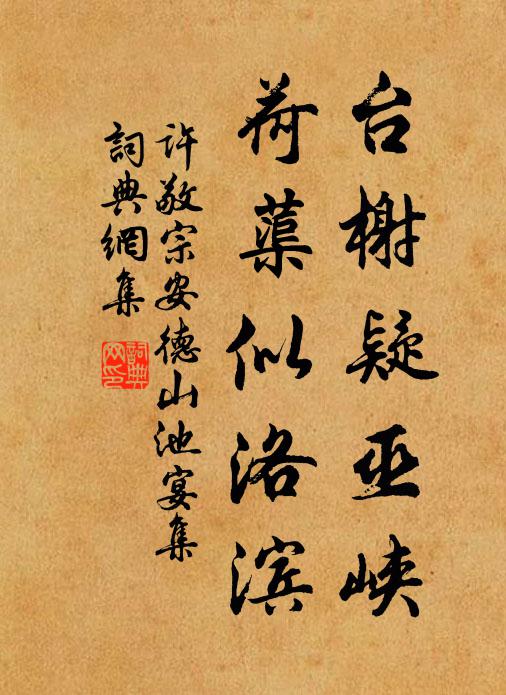 台榭疑巫峡
荷蕖似洛滨
许敬宗安德山池宴集
詞典網集
詞典網印